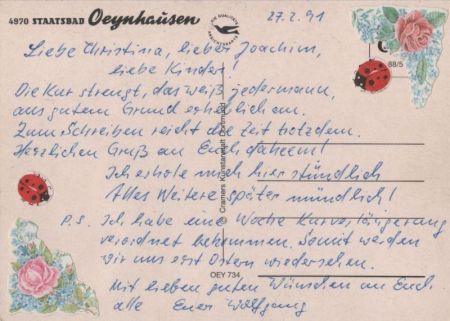 4970 STAATSBAD Oeynhausen
27.2.91
88/5
Liebe Christina, lieber Joachim,
liebe Kinder!
Die Kur strengt, das weiß jedermann,
aus gutem Grund erheblich an.
Zum Schreiben reicht die Zeit trotzdem.
Herzlichen Gruß an Euch daheim!
Ich erhole mich hier stündlich
Alles Weitere später mündlich!
P.S. Ich habe eine Woche Kurverlängerung
verordnet bekommen. Somit werden
wir uns erst Ostern wiedersehen.
Mit lieben guten Wünschen an Euch
alle Euer Wolfgang
© Cramers Kunstanstalt Dortmund
OEY 734